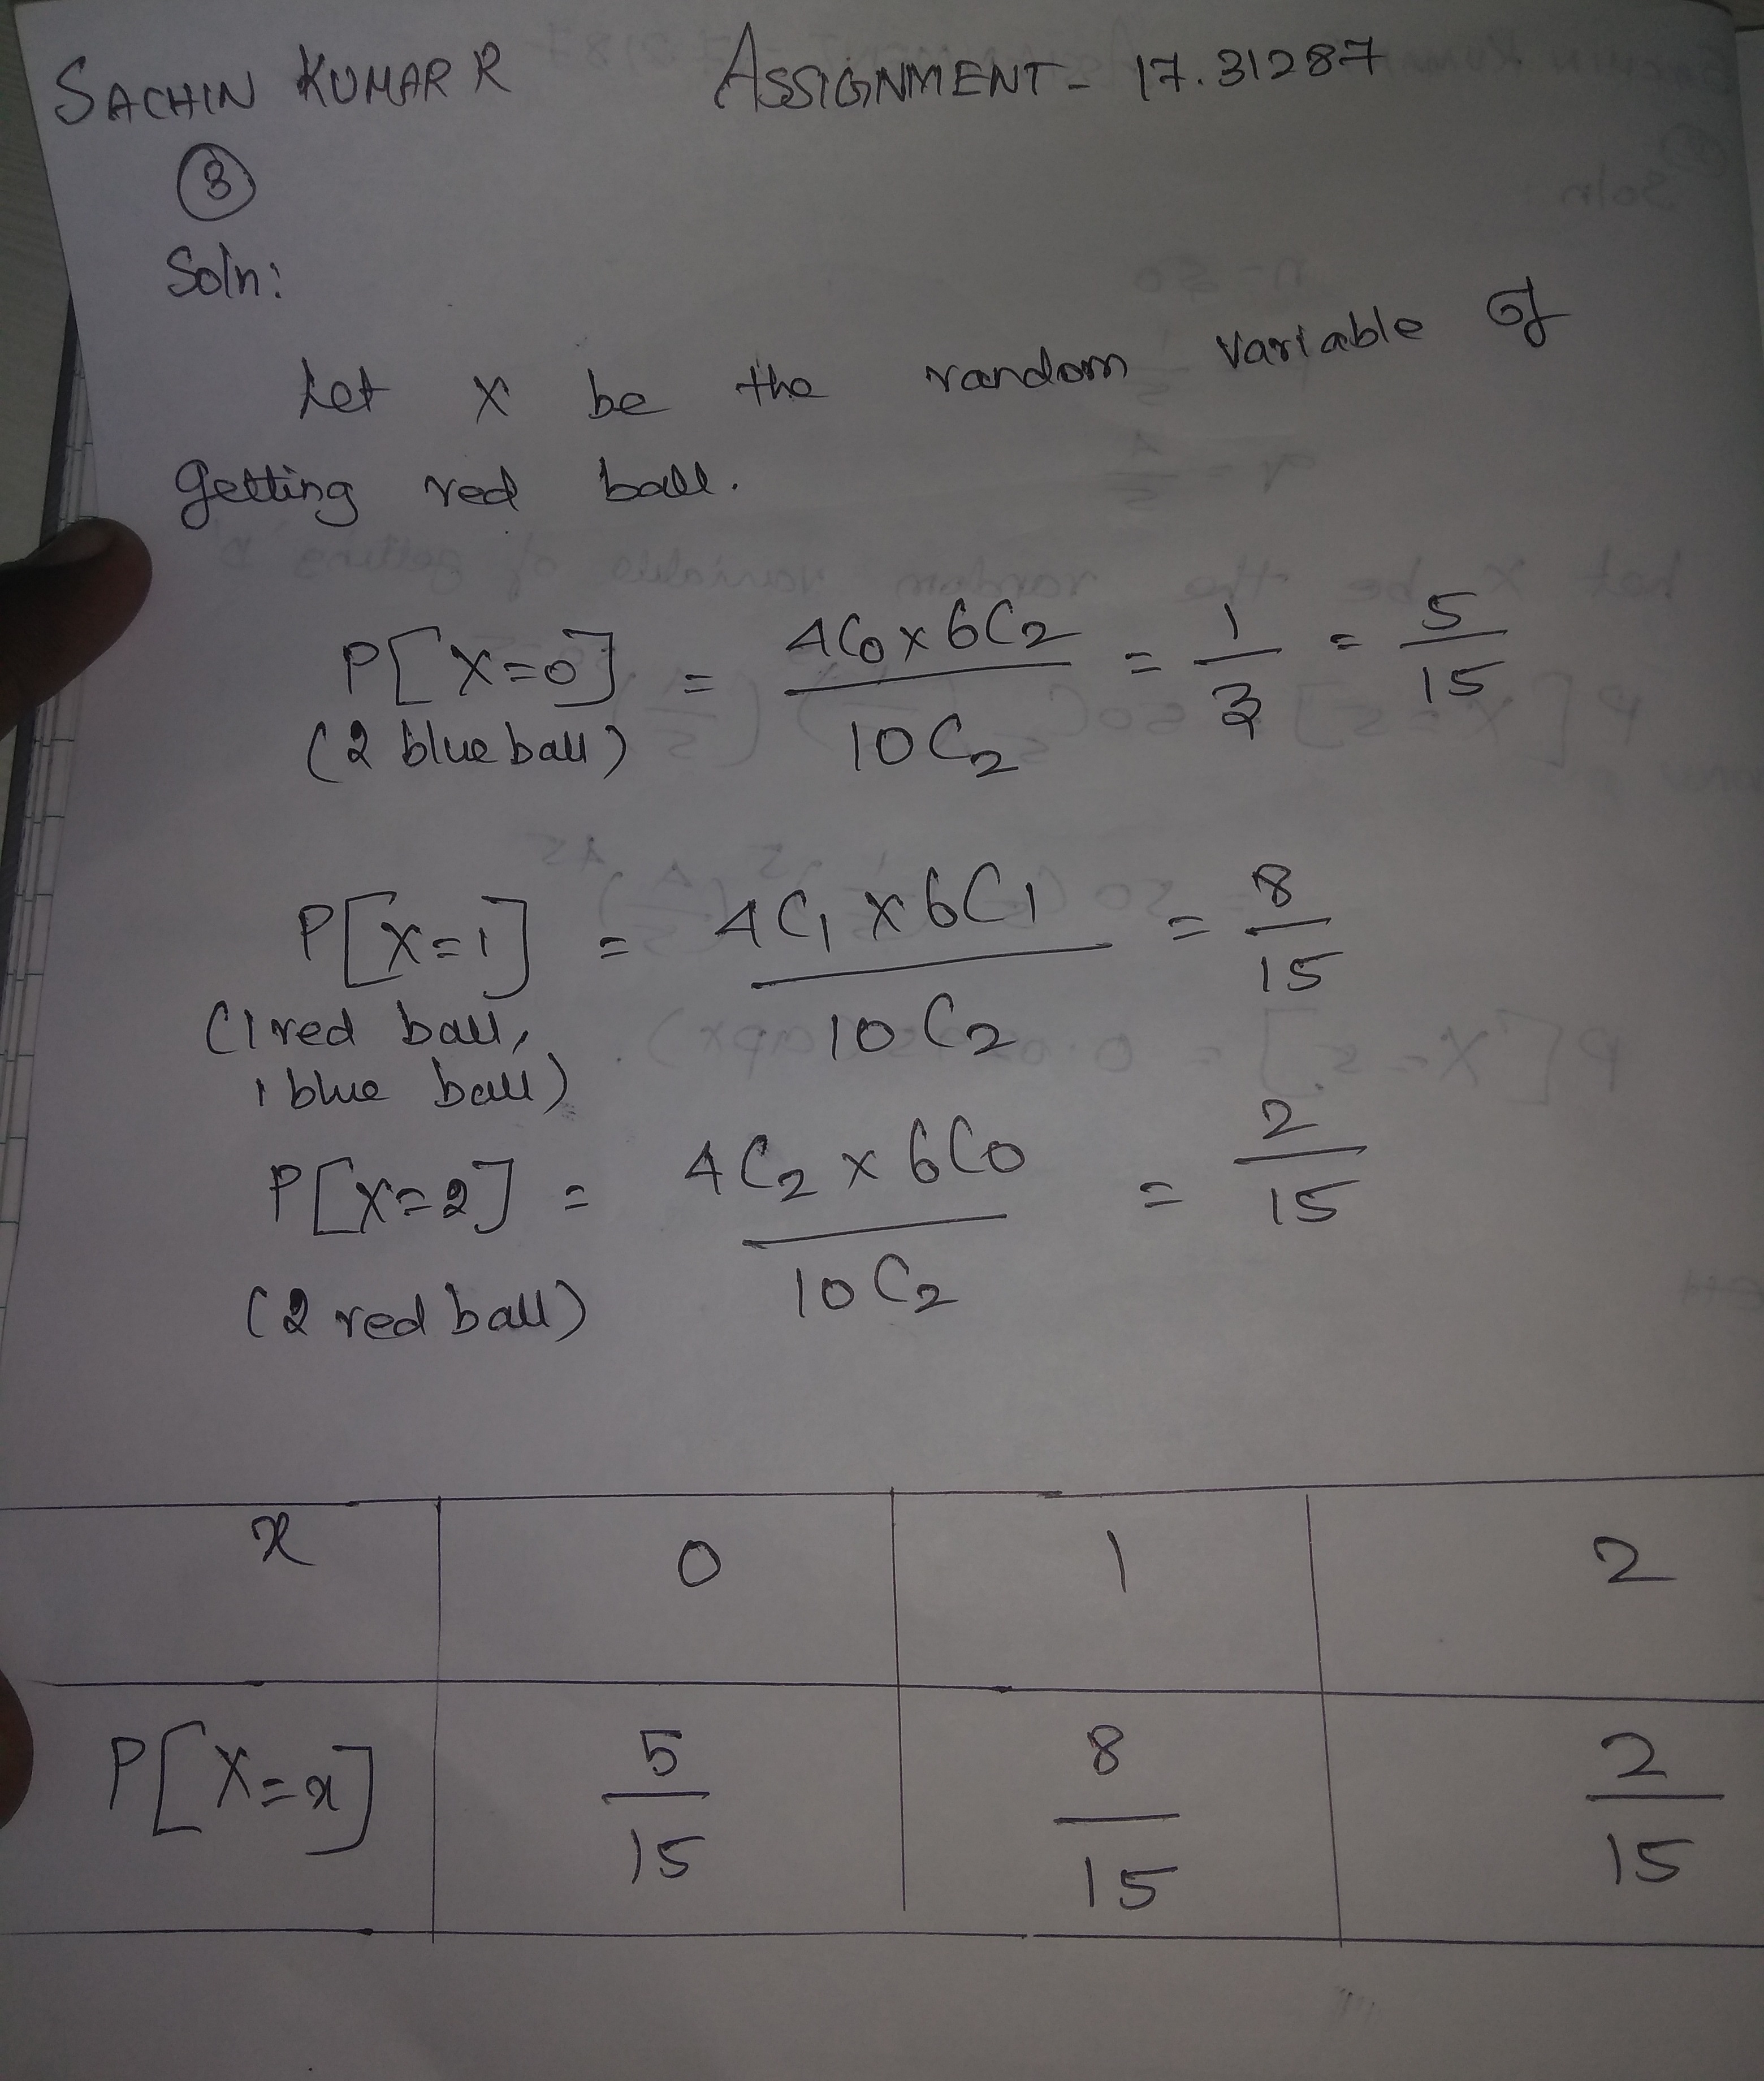 SACHIN KUMAR R ASSIGNMENT - 17.31287
3
Soln:
Let X be the random variable of
getting red ball.
P[X=0] = 4C0 x 6C2 / 10C2 = 1/3 = 5/15
(2 blue ball)
P[X=1] = 4C1 x 6C1 / 10C2 = 8/15
(1 red ball,
1 blue ball)
P[X=2] = 4C2 x 6C0 / 10C2 = 2/15
(2 red ball)
x 0 1 2
P[X=x] 5/15 8/15 2/15